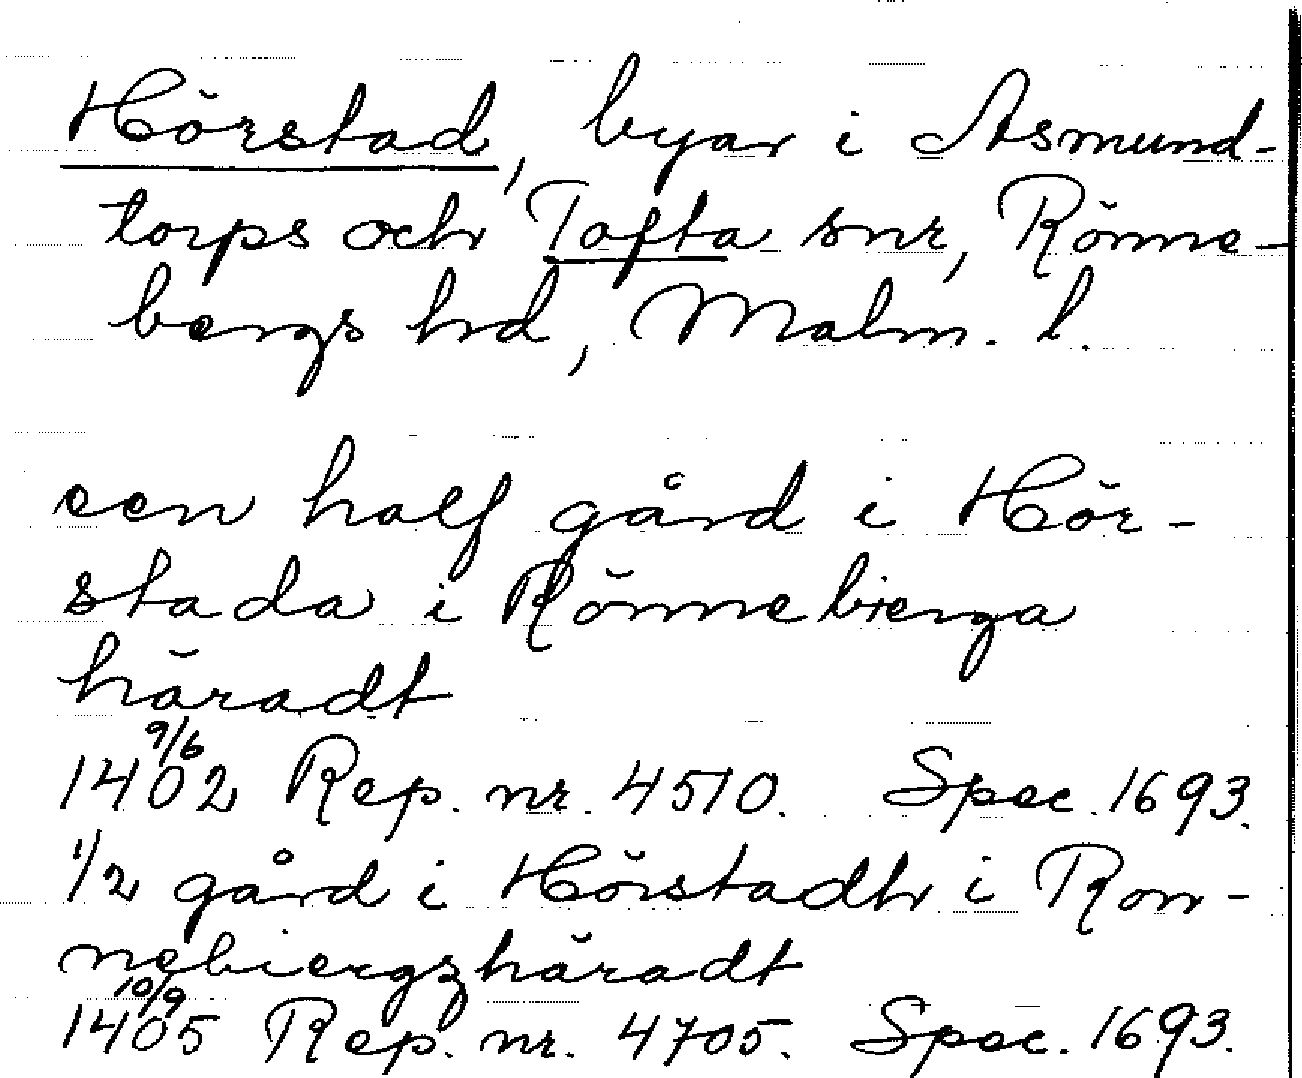 Hörstad, byar i Asmund-
torps och Tofta snr, Rönne-
bergs hd, Malm. l.
een half gård i Hör-
stada i Rönnebierga
häradt
9/6
1402 Rep. nr. 4510. Spec. 1693.
1/2 gård i Hörstadh i Ron-
nebiergzhäradt
10/9
1405 Rep. nr. 4705. Spec. 1693.